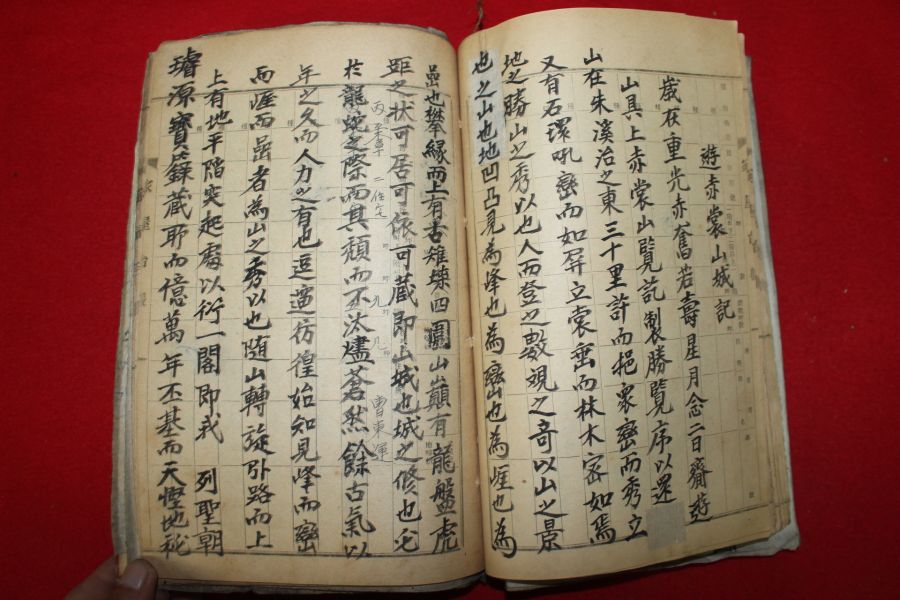 遊赤裳山城記
歲在重光赤奮若壽星月念二日齋遊
山具上赤裳山覽訖製勝覽序以還
山在朱溪治之東三十里許而挹衆巒而秀立
又有石環吼巒而如屛立裳峀而林木密如焉
地之勝山之秀以也人而登之數視之奇以山之景
也之山也地凹凸見為峰也為巒也為崕也為
嵒也攀緣而上有古雉堞四圍山巓有龍盤虎
距之狀可居可依可蔵即山城也城之修也
於龍蛇之際而其頹而不汰燼蒼然餘古氣以
年之久而人力之有也逗遛彷徨始知見峰而巒
而崕而嵒者為山之秀以也随山轉旋引路而上
上有地平陷突起處以衍一閣即我 列聖朝
璿源寶籙蔵耶而億萬年丕基而天慳地秘